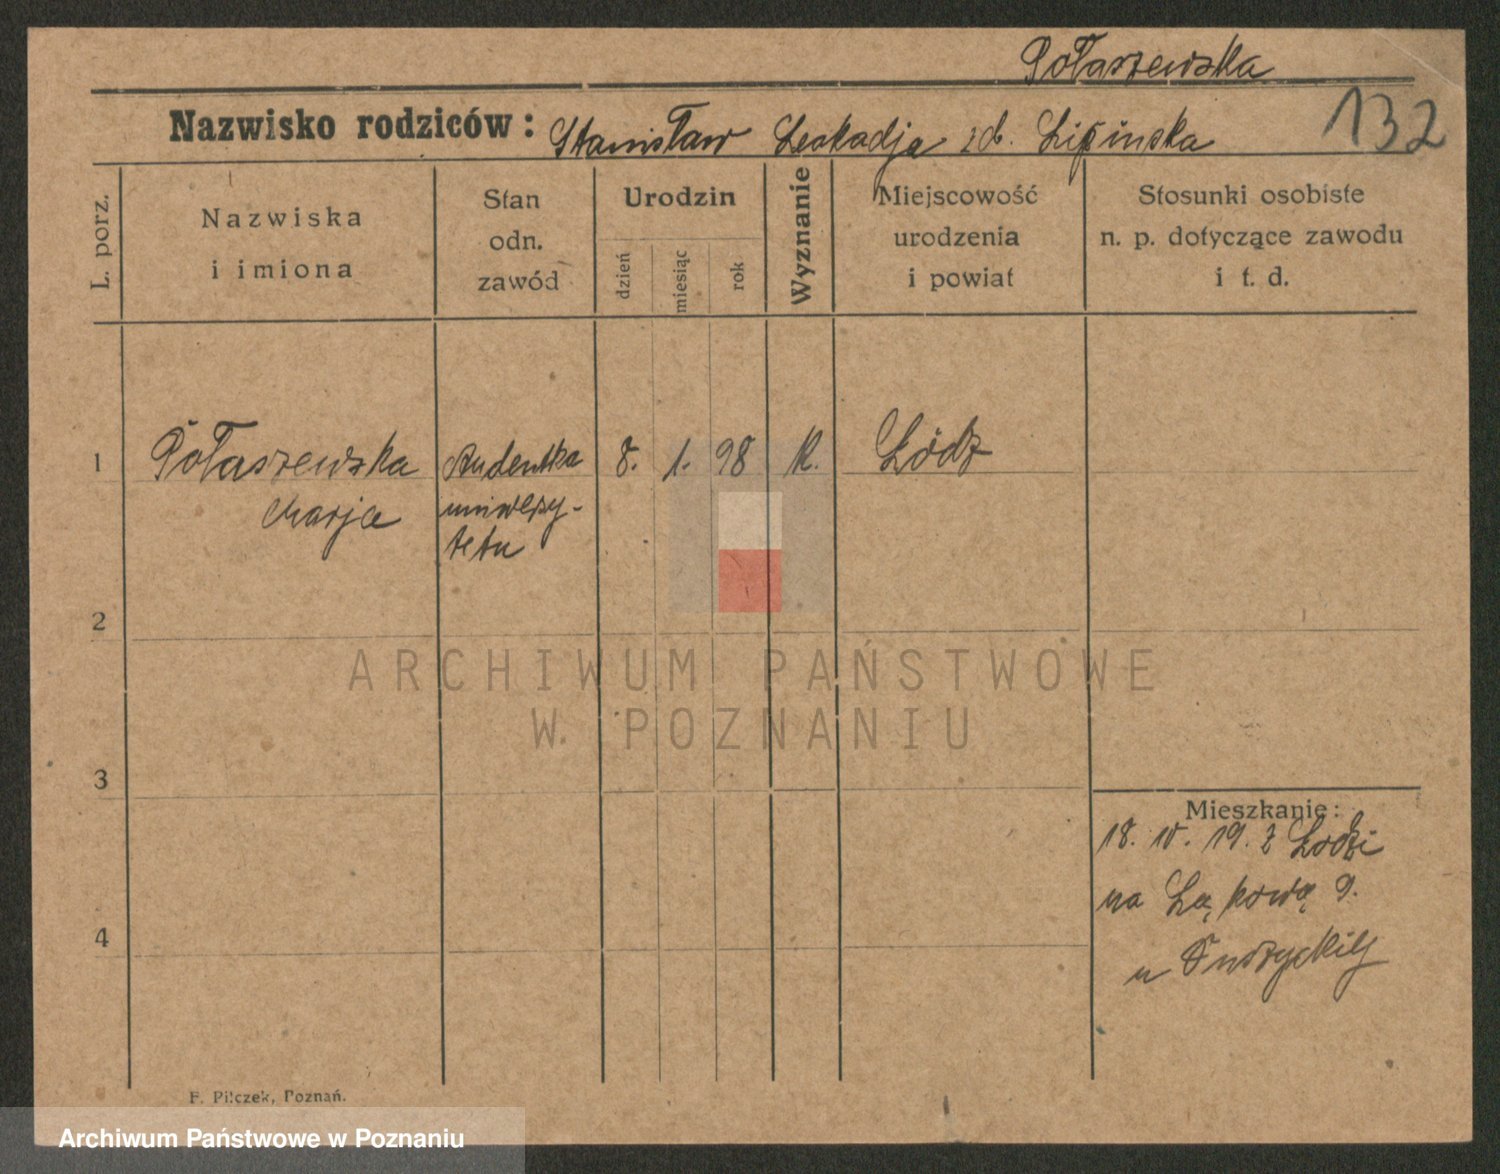 Połaszewska
132
Nazwisko rodziców: Stanisław Leokadja zd. Lipińska
L. porz.
Nazwiska
i imiona
Stan
odn.
zawód
Urodzin
dzień
miesiąc
rok
Wyznanie
Miejscowość
urodzenia
i powiat
Stosunki osobiste
n. p. dotyczące zawodu
i t. d.
1
Połaszewska
Marja
Studentka
uniwersy-
tetu
8. 1. 98
K.
Łódź
2
ARCHIWUM PAŃSTWOWE
W POZNANIU
3
4
Mieszkanie:
18. IV. 19. z Łodzi
na Łąkową 9.
u
F. Pilczek, Poznań.
Archiwum Państwowe w Poznaniu